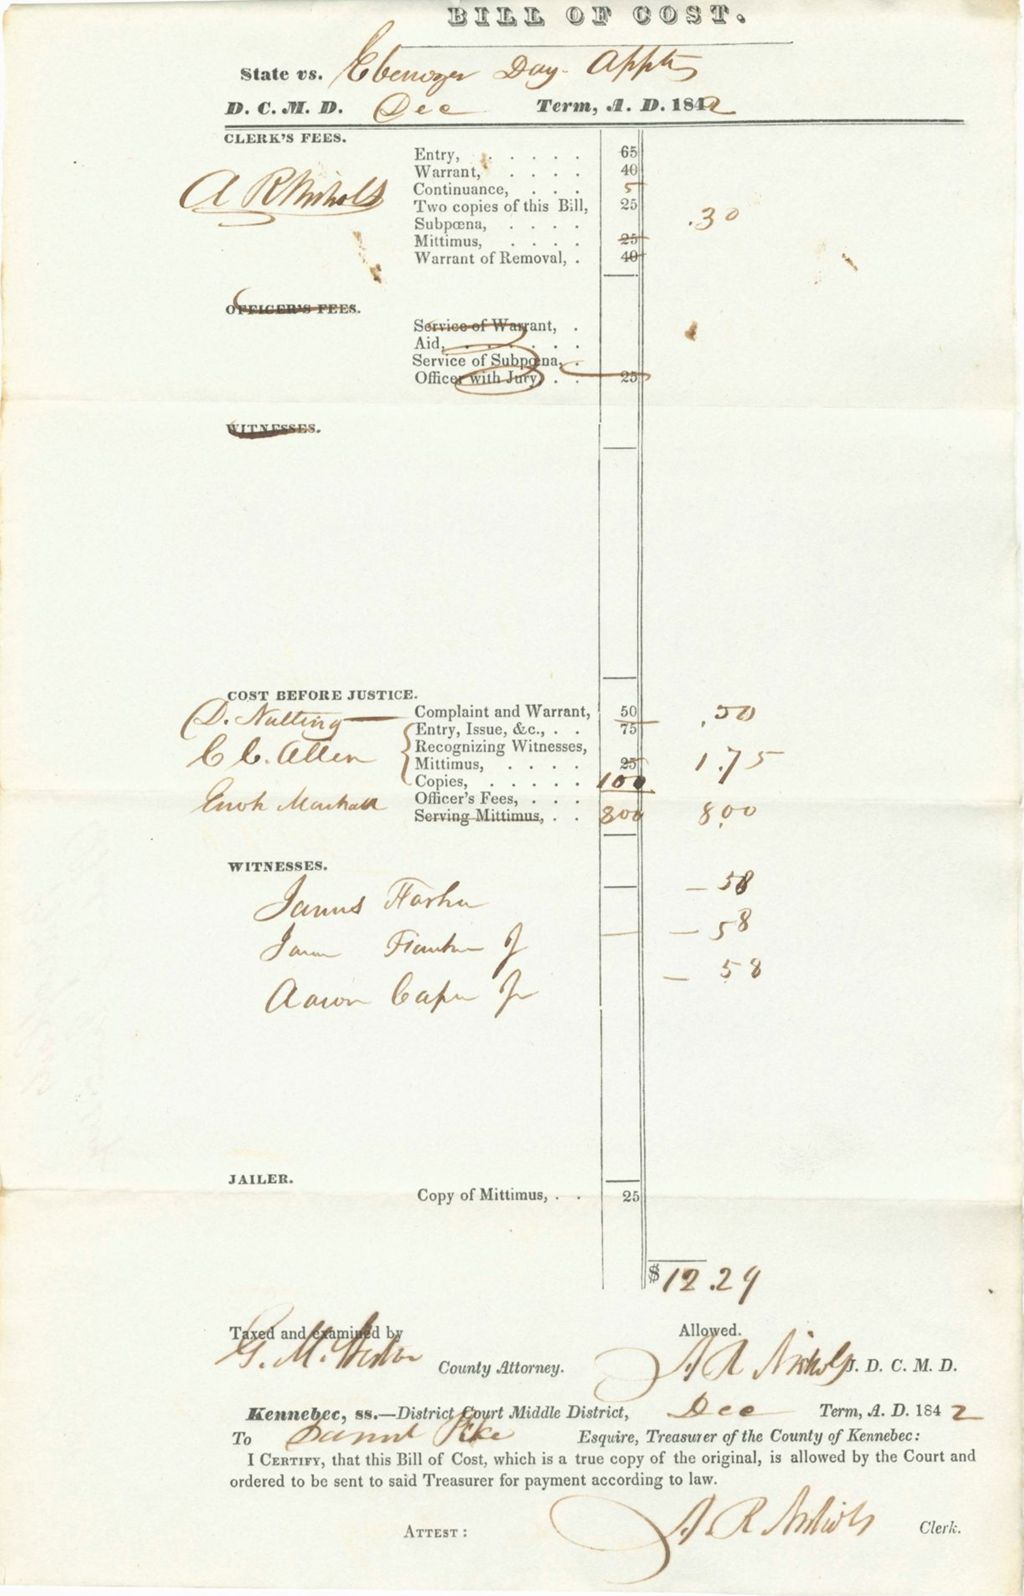 BILL OF COST.
State vs. Ebenezer Day Applts
D. C. M. D. Dec Term, A. D. 1842
CLERK'S FEES.
Entry, . . . . . 65
Warrant, . . . . 40
A R Nichols Continuance, . . . 5
Two copies of this Bill, 25 .30
Subpœna, . . . .
Mittimus, . . . . 25
Warrant of Removal, . 40
OFFICER'S FEES.
Service of Warrant, .
Aid, . . . . . .
Service of Subpœna, .
Officer with Jury, . . 25
WITNESSES.
COST BEFORE JUSTICE.
D. Nutting Complaint and Warrant, 50 .50
Entry, Issue, &c., . . 75
C C. Allen Recognizing Witnesses,
Mittimus, . . . . 25 1.75
Copies, . . . . . 100
Enoh Marshall Officer's Fees, . . .
Serving Mittimus, . . 800 8.00
WITNESSES.
James - 58
J - 58
Aaron Jr - 58
JAILER.
Copy of Mittimus, . . 25
$ 12.29
Taxed and examined by Allowed.
G. M. County Attorney. A R Nichols J. D. C. M. D.
Kennebec, ss.—District Court Middle District, Dec Term, A. D. 1842
To Daniel Pike Esquire, Treasurer of the County of Kennebec:
I CERTIFY, that this Bill of Cost, which is a true copy of the original, is allowed by the Court and
ordered to be sent to said Treasurer for payment according to law.
ATTEST: A. R Nichols Clerk.